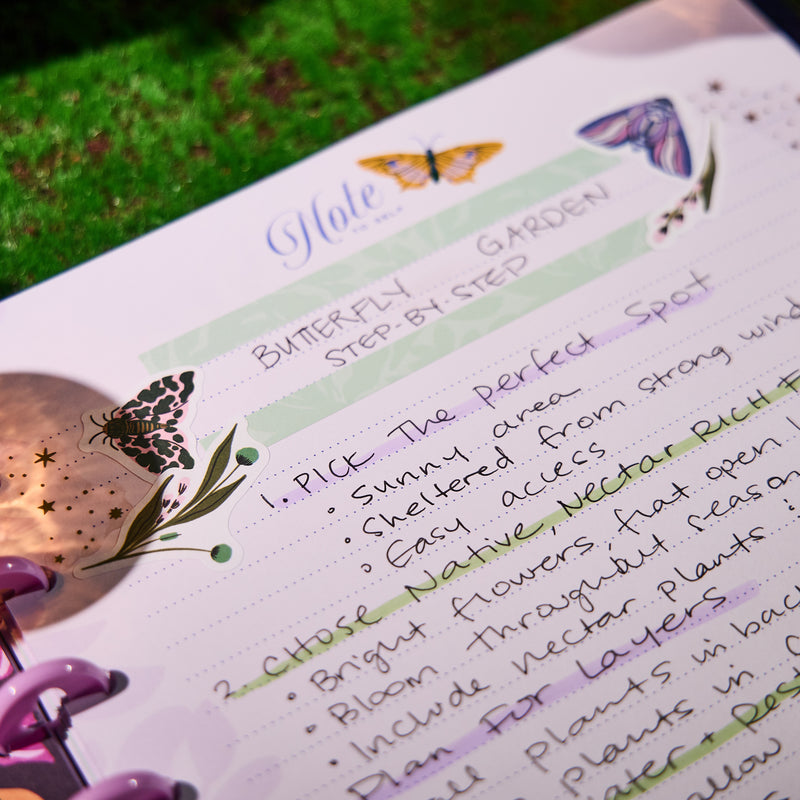 Note
TO SELF
BUTTERFLY GARDEN
STEP-BY-STEP
1. PICK The perfect Spot
• Sunny area
• Sheltered from strong wind
• Easy access
2. CHOSE Native, Nectar RICH F
• Bright flowers, flat open
• Bloom throughout season
• Include nectar plants
Plan For Layers
plants in back
plants in
ater + Rest
allow